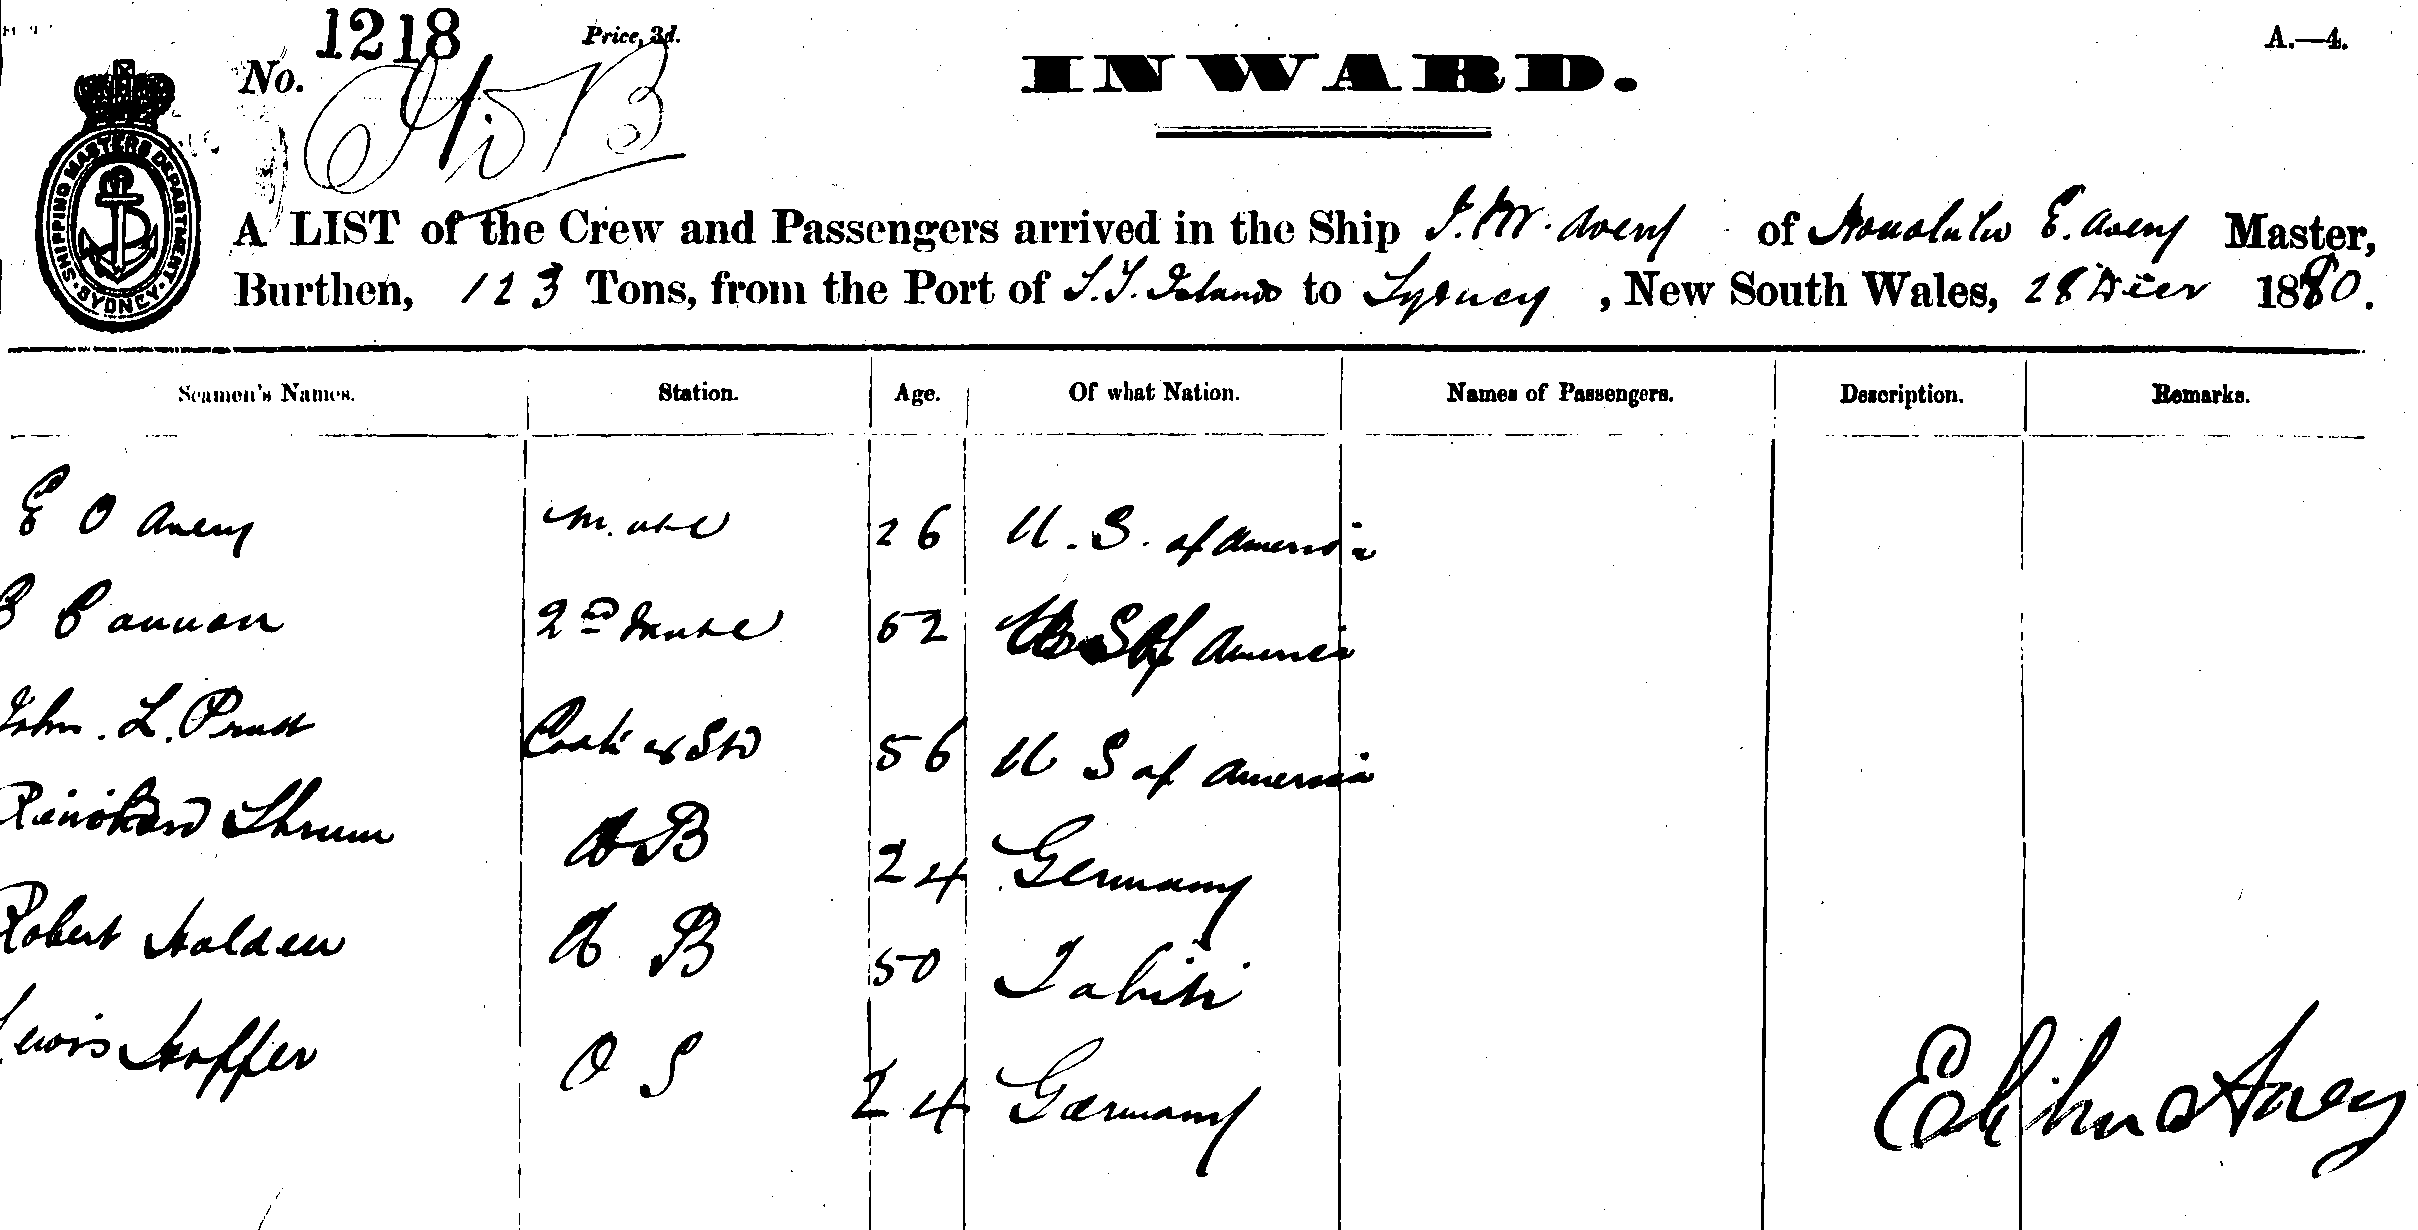 1218 Price, 3d. A.—4.
No. INWARD.
SHIPPING MASTERS DEPARTMENT SYDNEY
A LIST of the Crew and Passengers arrived in the Ship J. M. Avery of Honolulu E. Avery Master,
Burthen, 123 Tons, from the Port of S. S. Islands to Sydney, New South Wales, 28 Decr 1880.
Seamen's Names. Station. Age. Of what Nation. Names of Passengers. Description. Remarks.
E O Avery Mate 26 U. S. of America
Cannon 2nd Mate 52 U S of America
John. L. Pratt Cook & Std 56 U S of America
Reinchard Shrum A B 24 Germany
Robert Holden A B 50 Tahiti
Lewis Hoffer O S 24 Germany
Elihu Avery